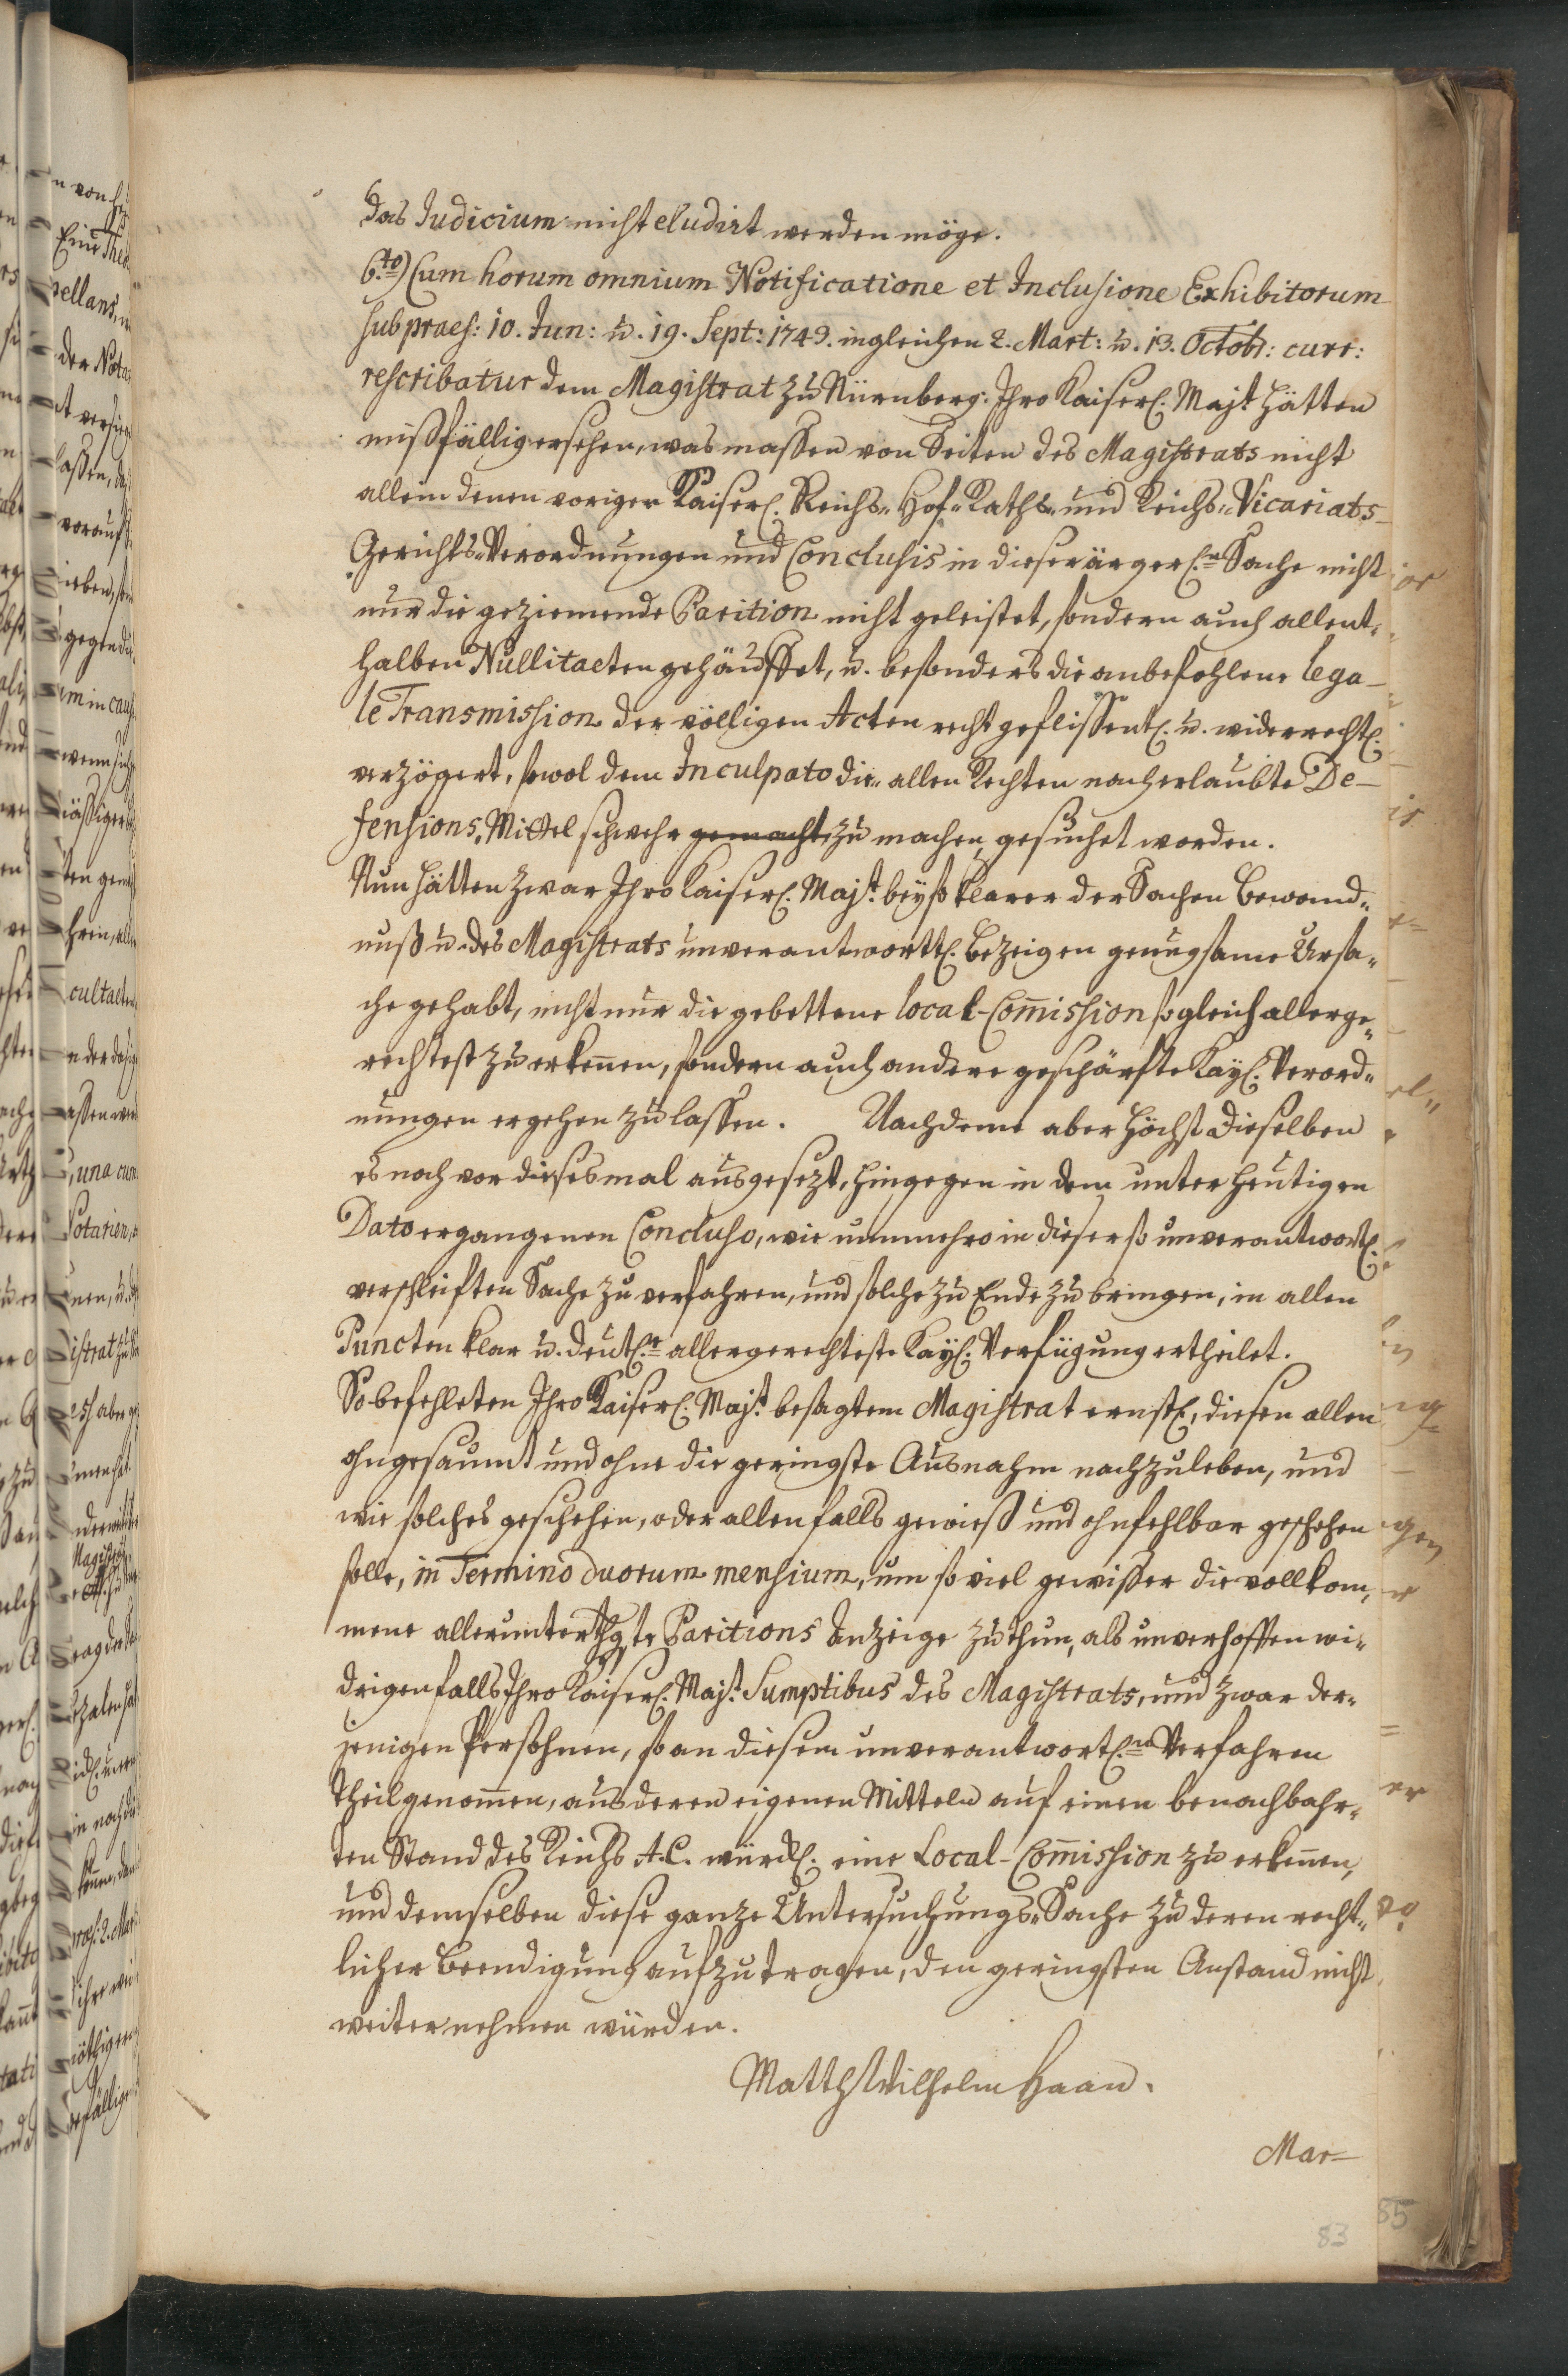 das Judicium nicht eludirt werden möge.
6.to) Cum horum omnium Notificatione et Inclusione Exhibitorum
sub praes: 10. Jun: u. 19. Sept: 1749. ingleichen 2. Mart: u. 13. Octobr: curr:
rescribatur dem Magistrat zu Nürnberg: Ihro Kaiserl. Majt. hätten
mißfällig ersehen, was massen von Seiten des Magistrats nicht
allein denen vorigen Kaiserl. Reichs-Hof-Raths- und Reichs-Vicariats-
Gerichts-Verordnungen und Conclusis in dieser ärgerl.n Sache nicht
nur die geziemende Parition nicht geleistet, sondern auch allent-
halben Nullitaeten gehäuffet, u. besonders die anbefohlene lega-
le Transmission der völligen Acten recht geflissentl. u. widerrechtl.
verzögert, sowol dem Inculpato die allen Rechten nach erlaubte De-
fensions-Mittel schwehr gemacht zu machen gesuchet worden.
Nun hätten zwar Ihro Kaiserl. Majt. bey so klarer der Sachen Bewand-
nuß u. des Magistrats unverantwortl. Bezeigen genugsame Ursa-
che gehabt, nicht nur die gebettene local-Com̅ission sogleich allerge-
rechtest zu erken̅en, sondern auch andere geschärfte Kayl. Verord-
nungen ergehen zu lassen. Nachdeme aber Höchst Dieselben
es noch vor dieses mal ausgesezt, hingegen in dem unter heutigen
Dato ergangenen Concluso, wie nunmehro in dieser so unverantwortl.
verschleiften Sache zu verfahren, und solche zu Ende zu bringen, in allen
Puncten klar u. deutl.e allergerechteste Kayl. Verfügung ertheilet.
So befehleten Ihro Kaiserl. Majt. besagtem Magistrat ernstl., diesen allen
ohngesaumt und ohne die geringste Ausnahm nachzuleben, und
wie solches geschehen, oder allenfalls gewieß und ohnfehlbar geschehen
solle, in Termino duorum mensium, um so viel gewisser die vollkom-
mene allerunterthgste Paritions Anzeige zu thun, als unverhoffen wi-
drigenfalls Ihro Kaiserl. Majt. Sumptibus des Magistrats, und zwar der-
jenigen Persohnen, so an diesem unverantwortl.n Verfahren
Theil genom̅en, aus deren eigenen Mitteln auf einen benachbahr-
ten Stand des Reichs A. C. würckl. eine Local-Com̅ission zu erken̅en,
und demselben diese ganze Untersuchungs-Sache zu deren recht-
licher Beendigung aufzutragen, den geringsten Anstand nicht
weiter nehmen würden.
Matth Wilhelm Haan.
Mar-
83
85